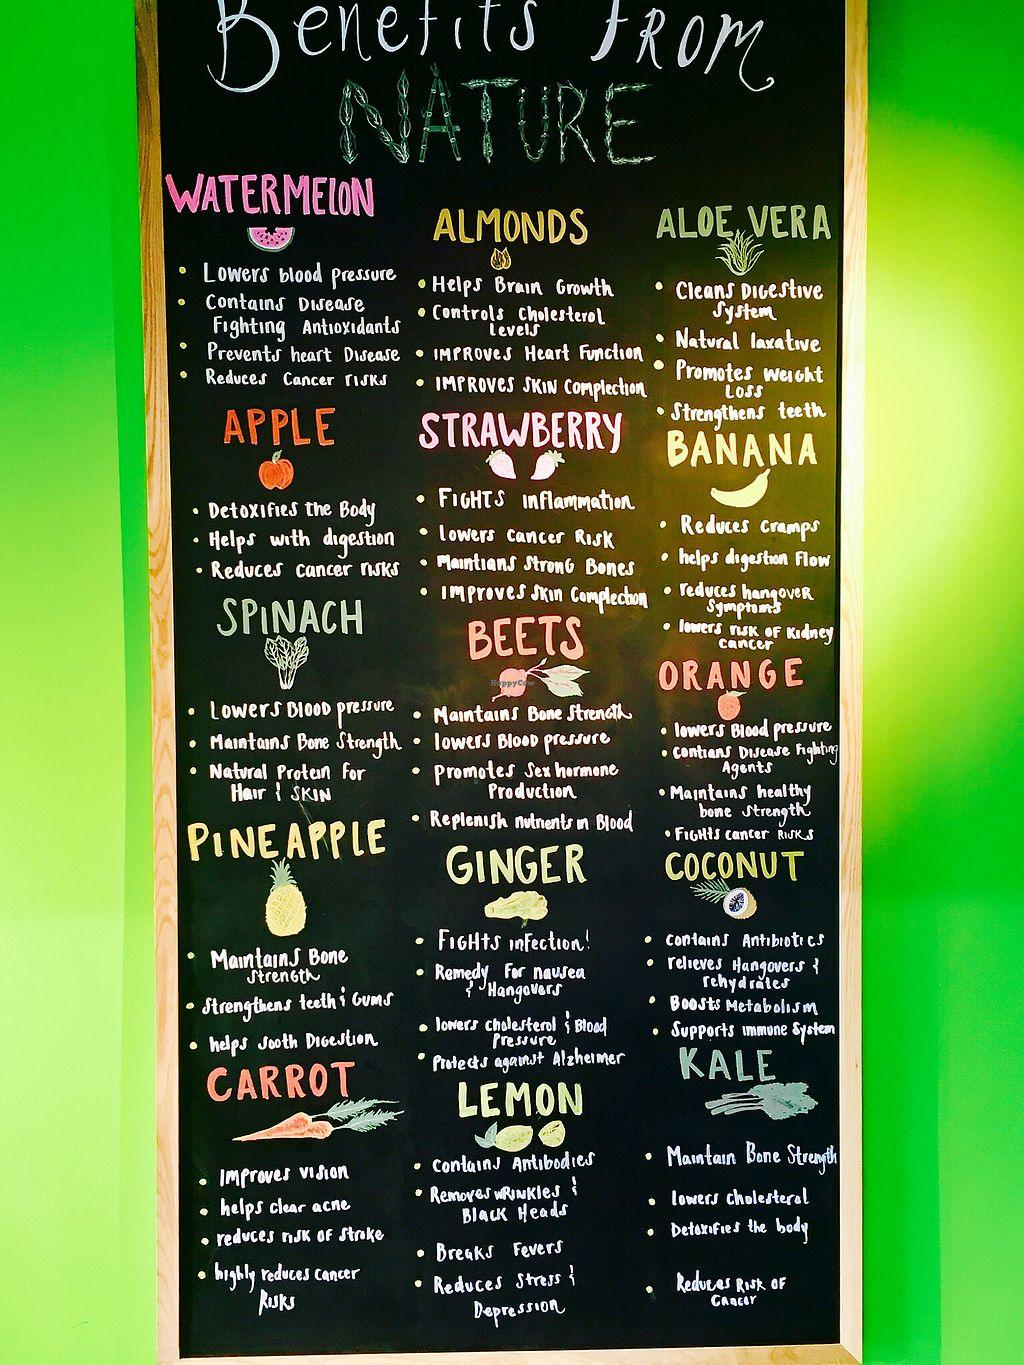 Benefits From
NATURE
WATERMELON
• Lowers blood pressure
• Contains Disease
Fighting Antioxidants
• Prevents heart Disease
• Reduces Cancer risks
APPLE
• Detoxifies the Body
• Helps with digestion
• Reduces cancer risks
SPINACH
• Lowers Blood pressure
• Maintains Bone Strength
• Natural Protein for
Hair & SKIN
PINEAPPLE
• Maintains Bone
Strength
• Strengthens teeth & Gums
• helps sooth Digestion
CARROT
• Improves vision
• helps clear acne
• reduces risk of stroke
• highly reduces cancer
Risks
ALMONDS
• Helps Brain Growth
• Controls Cholesterol
Levels
• IMPROVES Heart Function
• IMPROVES SKIN Complection
STRAWBERRY
• FIGHTS inflammation
• Lowers cancer Risk
• Maintians Strong Bones
• Improves Skin Complection
BEETS
HappyCow
• Maintains Bone Strength
• lowers Blood pressure
• Promotes Sex hormone
Production
• Replenish nutrients in Blood
GINGER
• FIGHTs infection!
• Remedy For nausea
& Hangovers
• lowers cholesterol & Blood
Pressure
• Protects against Alzheimer
LEMON
• Contains Antibodies
• Removes wrinkles &
Black Heads
• Breaks Fevers
• Reduces Stress &
Depression
ALOE VERA
• Cleans Digestive
System
• Natural laxative
• Promotes weight
Loss
• Strengthens teeth
BANANA
• Reduces cramps
• helps digestion Flow
• reduces hangover
Symptoms
• lowers risk of Kidney
cancer
ORANGE
• lowers Blood pressure
• contians Disease Fighting
Agents
• Maintains healthy
bone strength
• FIGHTS cancer RISKS
COCONUT
• contains Antibiotics
• relieves Hangovers &
rehydrates
• Boosts Metabolism
• Supports immune System
KALE
• Maintain Bone Strength
• lowers cholesterol
• Detoxifies the body
• Reduces Risk of
Cancer